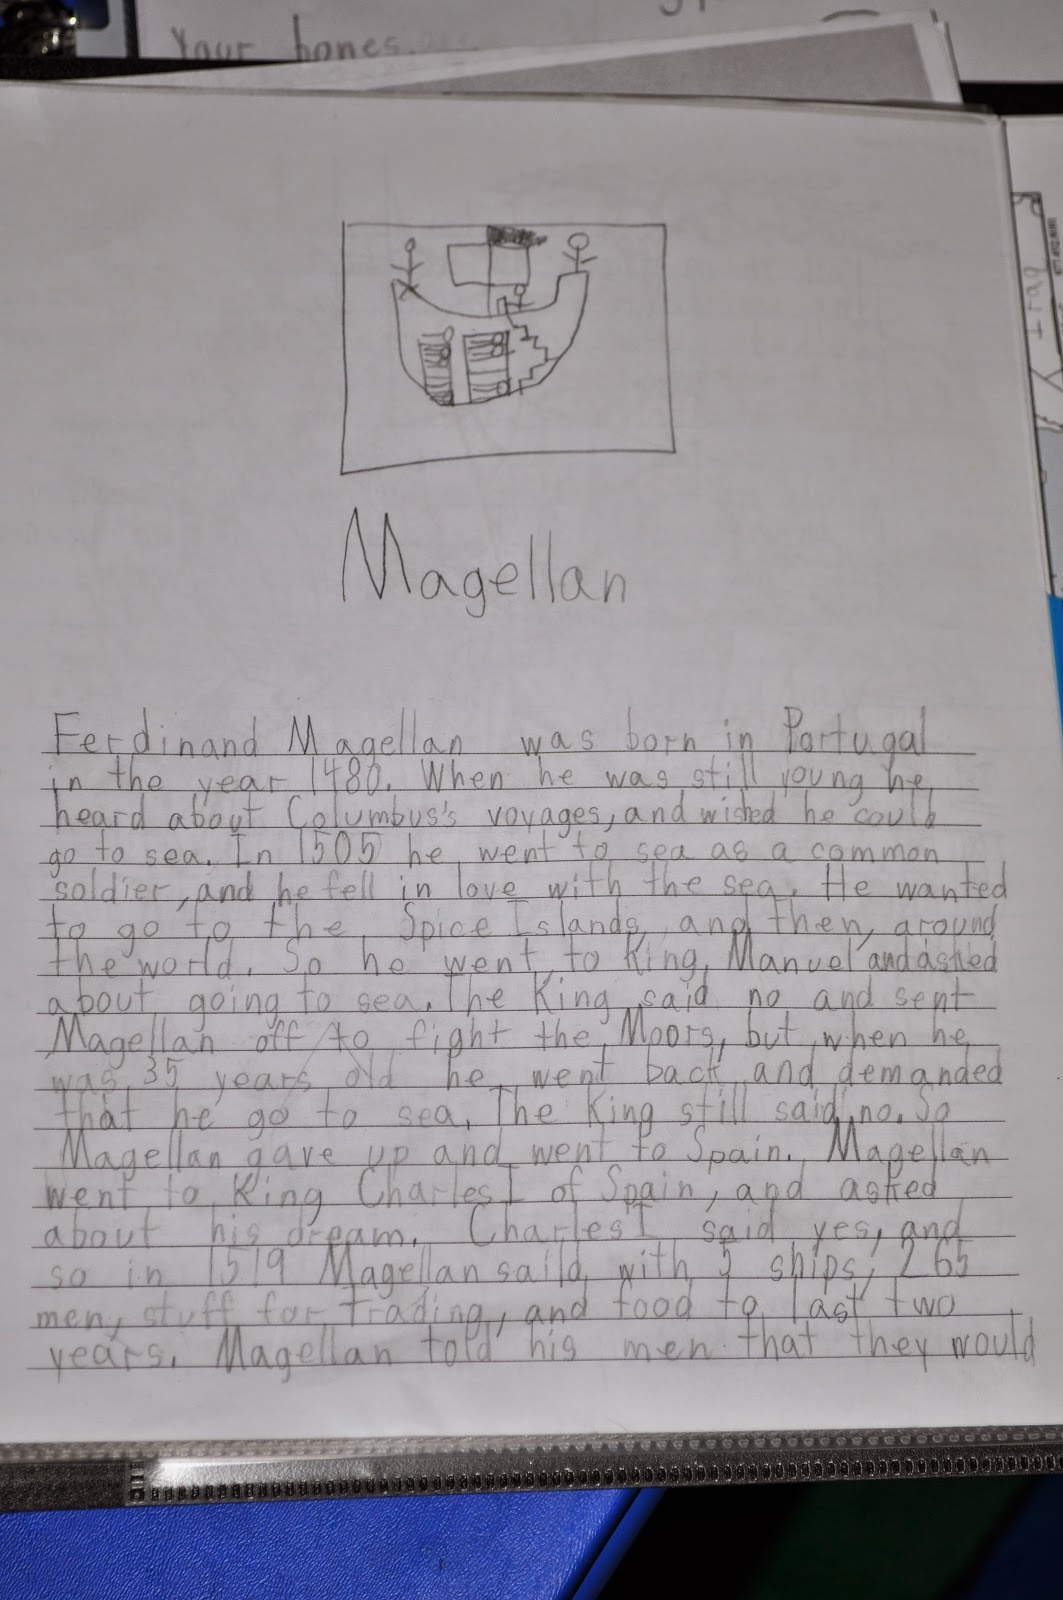 Your bones.
Iraq
Magellan
Ferdinand Magellan was born in Portugal
in the year 1480. When he was still young he
heard about Columbus's voyages, and wished he could
go to sea. In 1505 he went to sea as a common
soldier, and he fell in love with the sea. He wanted
to go to the Spice Islands, and then, around
the world. So he went to King Manuel and asked
about going to sea. The King said no and sent
Magellan off to fight the Moors, but when he
was 35 years old he went back and demanded
that he go to sea. The King still said no. So
Magellan gave up and went to Spain. Magellan
went to King Charles I of Spain, and asked
about his dream. Charles I said yes, and
so in 1519 Magellan saild with 5 ships, 265
men, stuff for trading, and food to last two
years. Magellan told his men that they would